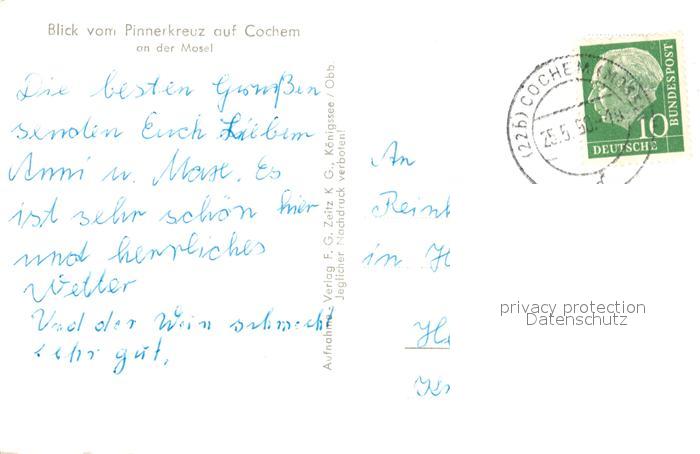 Blick vom Pinnerkreuz auf Cochem
an der Mosel
Die besten Grüßen
senden Euch Lieben
Anni u. Max. Es
ist sehr schön hier
und herrliches
Wetter
Und der Wein schmeckt
sehr gut,
Aufnahme - Verlag F. G. Zeitz K G., Königssee / Obb.
Jeglicher Nachdruck verboten!
(22b) COCHEM (MOSEL)
25.5.60
10
DEUTSCHE
BUNDESPOST
An
Rein
in H
privacy protection
Datenschutz